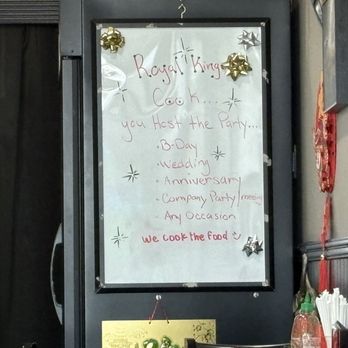 Royal King
Cook...
you Host the Party...
• B-Day
• Wedding
• Anniversary
• Company Party/meeting
• Any Occasion
We cook the food